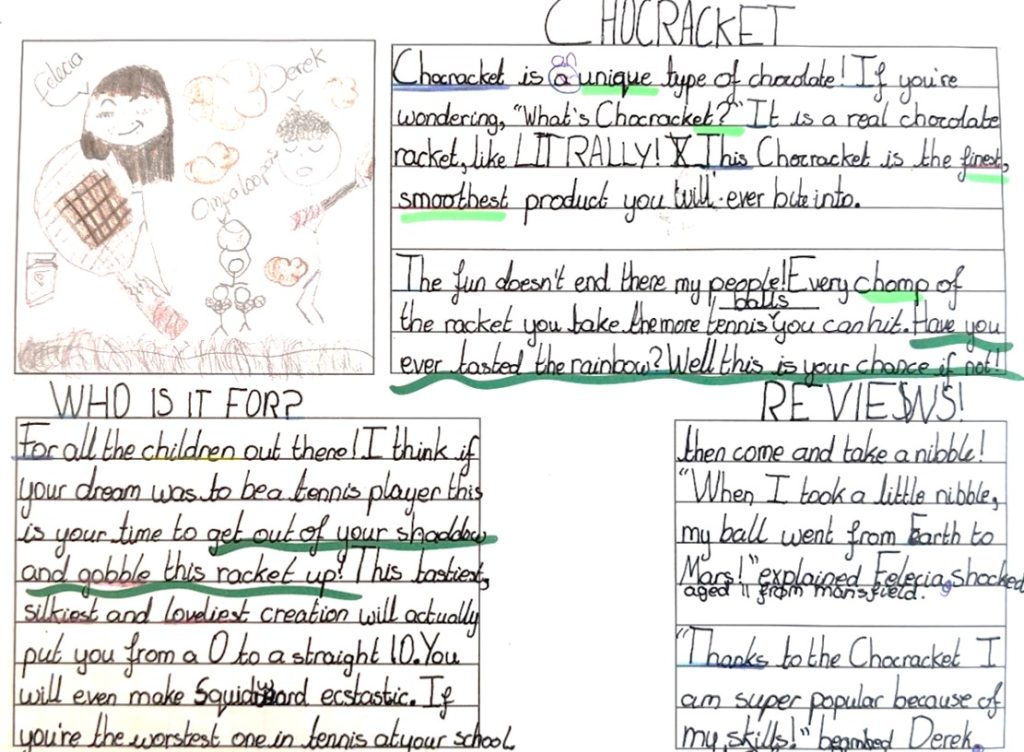 CHOCRACKET
Felecia
Derek
Ompaloompa
an
Chocracket is a unique type of chocolate! If you're
wondering, "What's Chocracket?" It is a real chocolate
racket, like LITRALLY! This Chocracket is the finest,
smoothest product you will ever bite into.
The fun doesn't end there my people! Every chomp of
balls
the racket you take the more tennis you can hit. Have you
ever tasted the rainbow? Well this is your chance if not!
WHO IS IT FOR?
For all the children out there! I think if
your dream was to be a tennis player this
is your time to get out of your shaddow
and gobble this racket up! This tastiest,
silkiest and loveliest creation will actually
put you from a 0 to a straight 10. You
will even make Squidward ecstastic. If
you're the worstest one in tennis at your school,
REVIEWS!
then come and take a nibble!
"When I took a little nibble,
my ball went from Earth to
Mars!" explained Felecia, shocked
aged 11 from mansfield.
"Thanks to the Chocracket I
am super popular because of
my skills!" Derek,